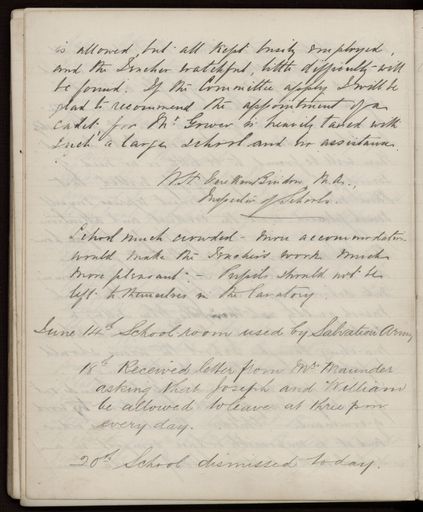 is allowed, but all kept busily employed,
and the Teacher watchful, little difficulty will
be found. If the Committee apply I will be
glad to recommend the appointment of a
cadet for Mr Gower is heavily taxed with
such a large school and no assistance.
W. H. Vereker-Bindon, M.A.,
Inspector of Schools
School much crowded - more accommodation
would make the Teacher's work much
more pleasant. - Pupils should not be
left to themselves in the lavatory
June 14th School room used by Salvation Army
18th Received letter from Mrs Maunder
asking that Joseph and William
be allowed to leave at three p.m
every day.
20th School dismissed today.